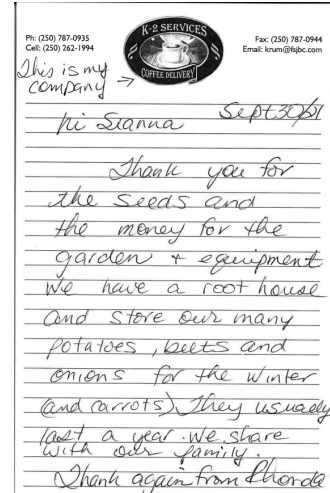 Ph: (250) 787-0935
Cell: (250) 262-1994
K-2 SERVICES
COFFEE DELIVERY
Fax: (250) 787-0944
Email: krum@fsjbc.com
This is my
company →
Sept 30/21
hi Sianna
Thank you for
the seeds and
the money for the
garden + equipment
We have a root house
and store our many
potatoes, beets and
onions for the winter
(and carrots) They usually
last a year. We share
with our family.
Thank again from Rhonda